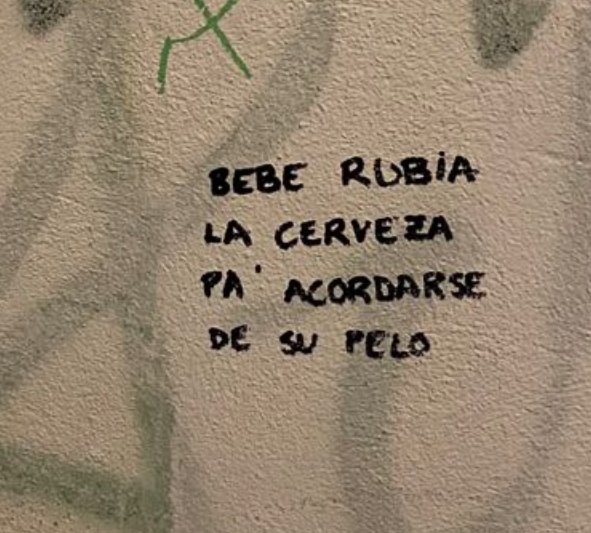 BEBE RUBiA
LA CERVEZA
PA' ACORDARSE
DE SU PELO